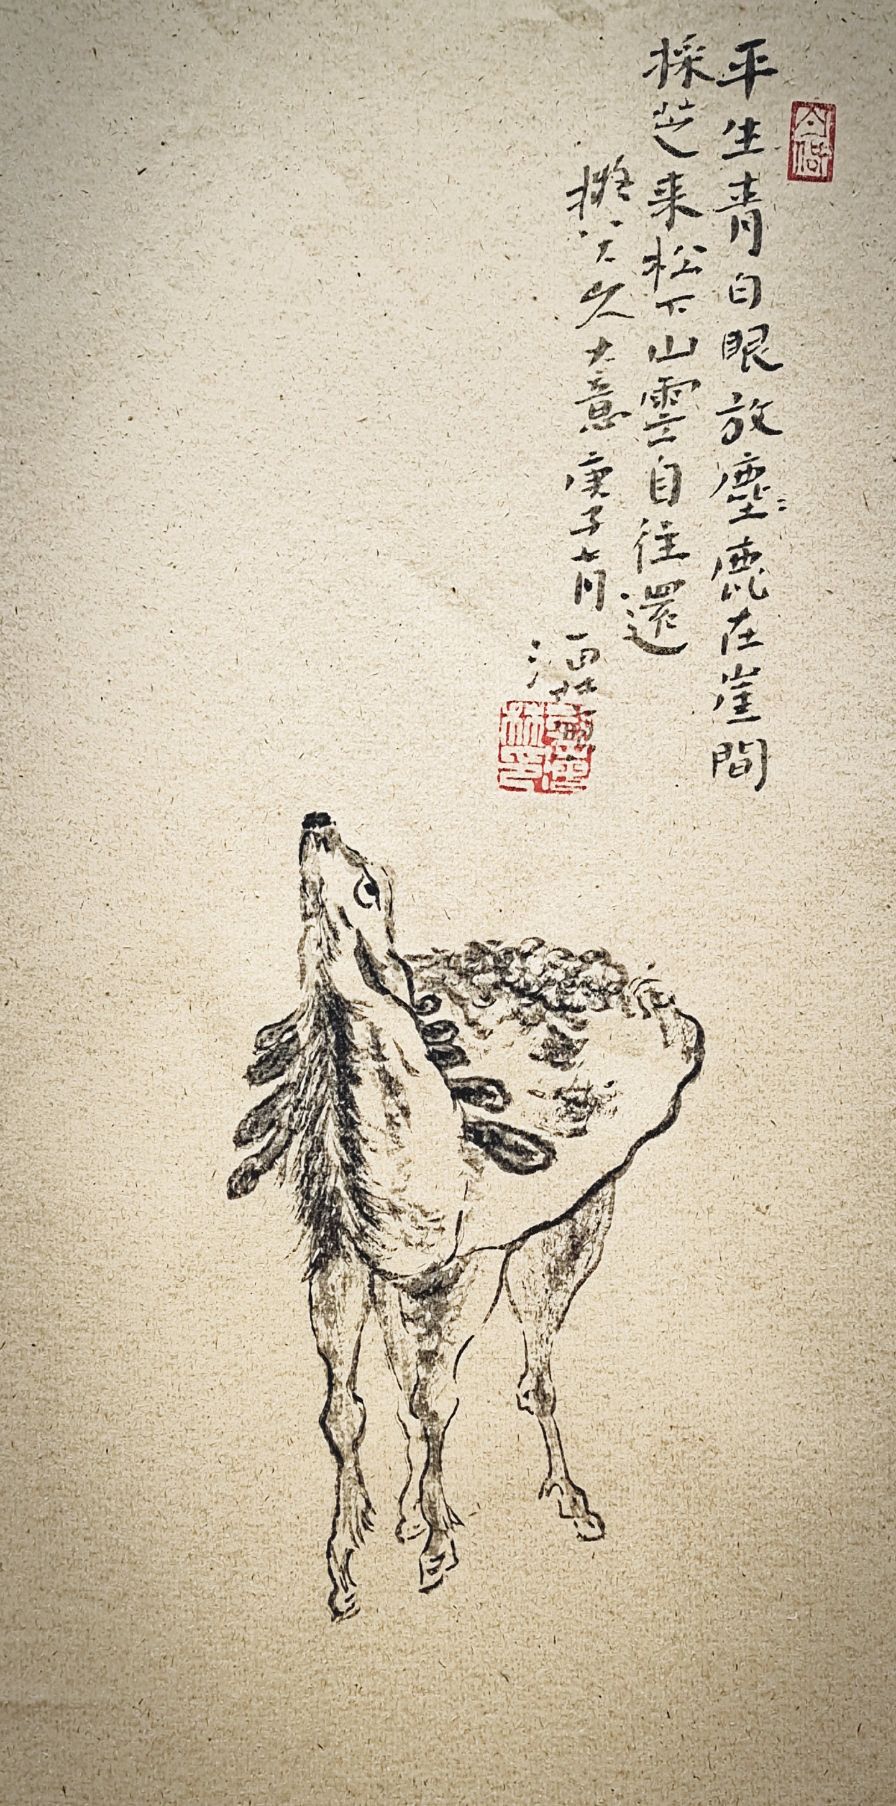 平生青白眼放塵〻鹿在崖間
採芝来松下山雲自往還
擬八大山人大意庚子七月
酒